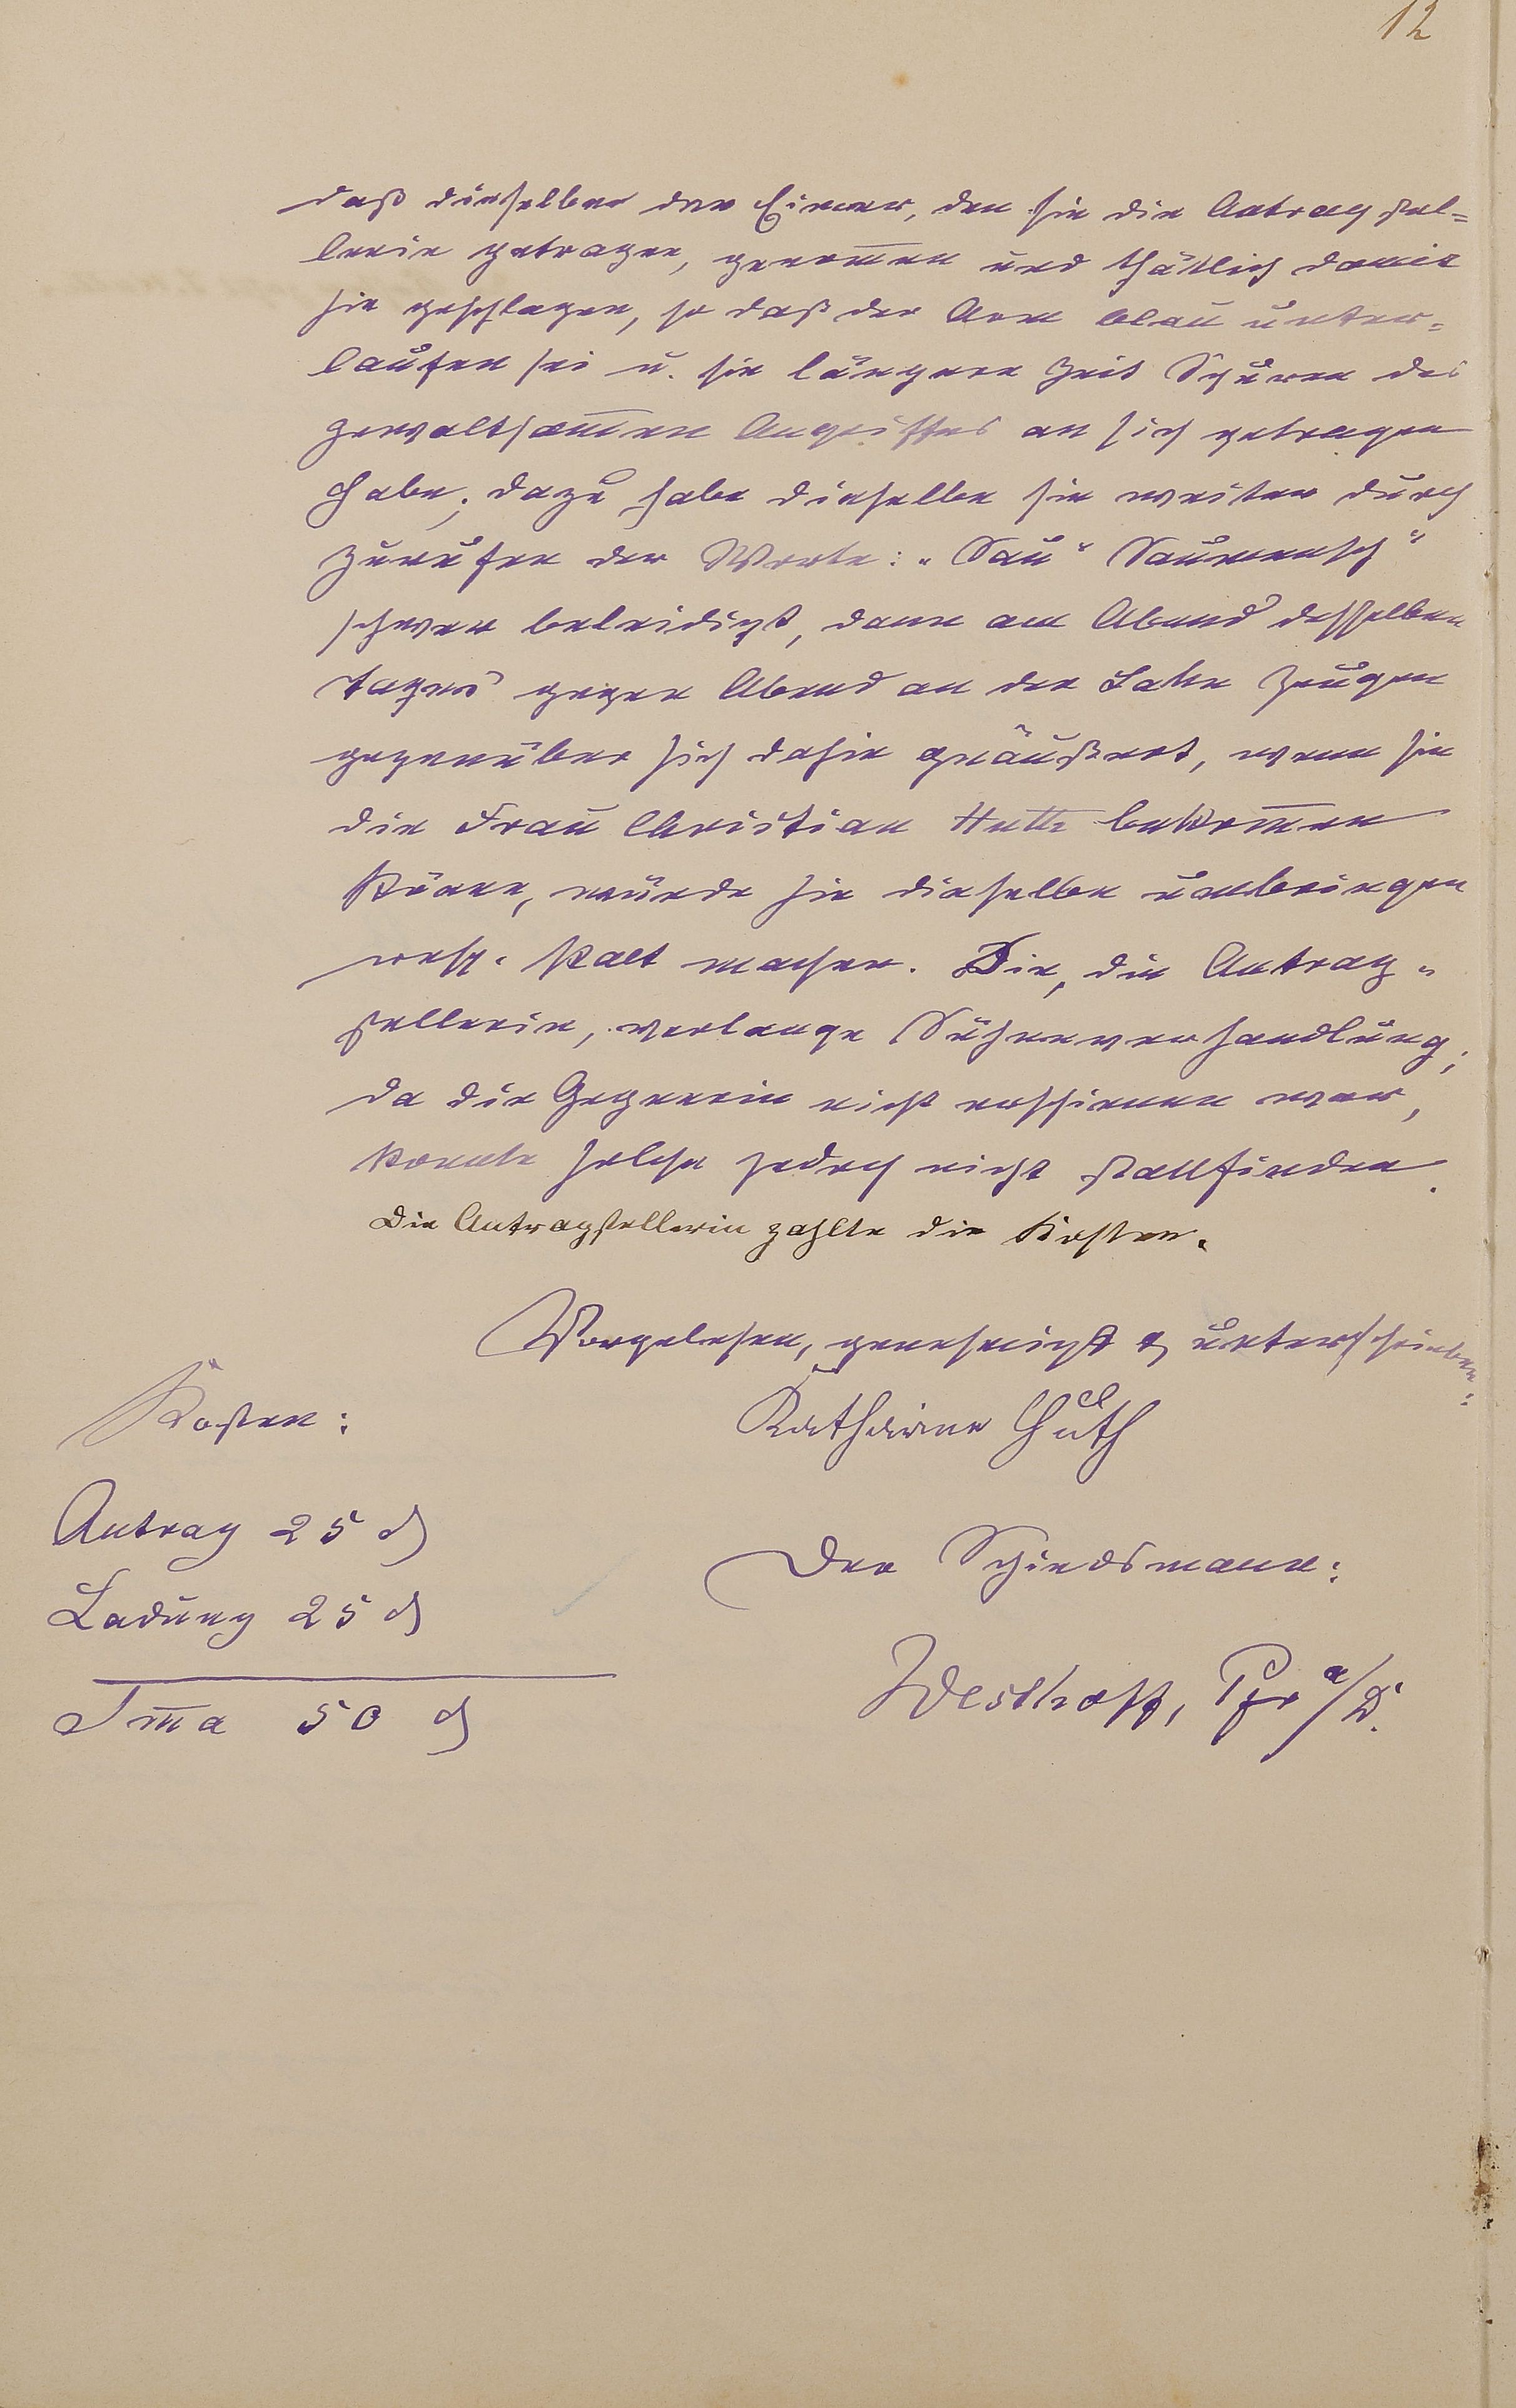 12
daß dieselbe den Eimer, den sie die Antragstel=
lerin getragen, genom̅en und thätlich damit
sie geschlagen, so daß der Arm blau unter=
laufen sei u. sie längere Zeit Spuren des
gewaltsam̅en Angriffes an sich getragen
habe; dazu habe dieselbe sie weiter durch
Zurufen der Worte: „Sau“ Saumensch“
schwer beleidigt, dann am Abend desselben
Tages gegen Abend an der Lahn Zeugen
gegenüber sich dahin geäußert, wenn sie
die Frau Christian Huth bekom̅en
könne, würde sie dieselbe umbringen
resp. kalt machen. Die, die Antrag=
stellerin, verlange Sühneverhandlung;
da die Gegnerin nicht erschienen war,
konnte solche jedoch nicht stattfinden.
Die Antragstellerin zahlte die Kosten.
Vorgelesen, genehmigt & unterschrieben:
Katharine Huth
Kosten:
Antrag 25 ₰
Ladung 25 ₰
Sm̅a 50 ₰
Der Schiedsmann:
Westhoff, Pfr a/D.